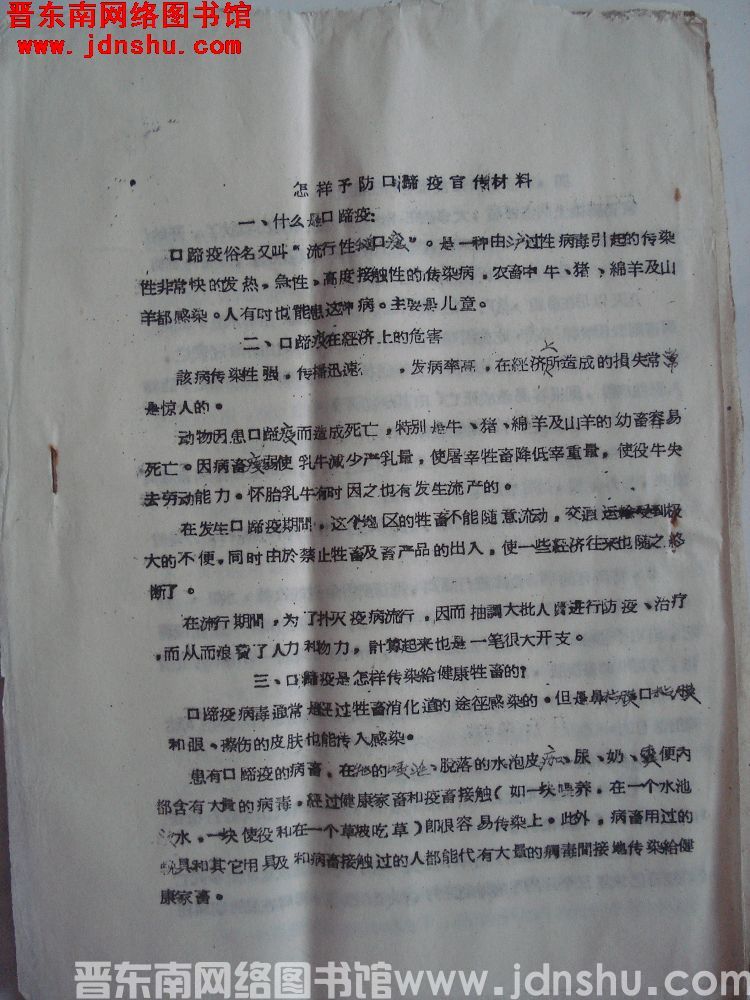 晋东南网络图书馆
www.jdnshu.com
怎样予防口蹄疫宣传材料
一、什么是口蹄疫:
口蹄疫俗名又叫“流行性口疮”。是一种由沪过性病毒引起的传染
性非常快的发热，急性、高度接触性的传染病，农畜中牛、猪、綿羊及山
羊都感染。人有时也能患这种病。主要是儿童。
二、口蹄疫在經济上的危害
該病传染性强，传播迅速 ，发病率高，在經济上所造成的损失常常
是惊人的。
动物因患口蹄疫而造成死亡，特别是牛、猪、綿羊及山羊的幼畜容易
死亡。因病畜疲弱使乳牛減少产乳量，使屠宰牲畜降低宰重量，使役牛失
去劳动能力。怀胎乳牛有时因之也有发生流产的。
在发生口蹄疫期間，这个地区的牲畜不能随意流动，交通运输受到极
大的不便，同时由於禁止牲畜及畜产品的出入，使一些经济往来也随之終
断了。
在流行期間，为了扑灭疫病流行，因而抽調大批人員进行防疫、治疗
，而从而浪费了人力和物力，計算起来也是一笔很大开支。
三、口蹄疫是怎样传染給健康牲畜的?
口蹄疫病毒通常是经过牲畜消化道的途径感染的。但是鼻粘膜口粘膜
和眼、擦伤的皮肤也能传入感染。
患有口蹄疫的病畜，在他的 、脱落的水泡皮 、尿、奶、粪便内
都含有大量的病毒。经过健康家畜和疫畜接触(如一块喂养，在一个水池
饮水，一块使役和在一个草坡吃草)即很容易传染上。此外，病畜用过的
具和其它用具及和病畜接触过的人都能代有大量的病毒間接地传染給健
康家畜。
晋东南网络图书馆www.jdnshu.com